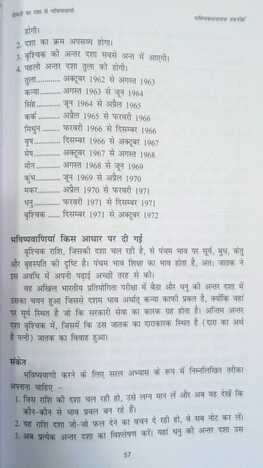 होगी।
2. दशा का क्रम अपसव्य होगा।
3. वृश्चिक की अन्तर दशा सबसे अन्त में आएगी।
4. पहली अन्तर दशा तुला की होगी।
तुला.......... अक्टूबर 1962 से अगस्त 1963
कन्या.......... अगस्त 1963 से जून 1964
सिंह.......... जून 1964 से अप्रैल 1965
कर्क.......... अप्रैल 1965 से फरवरी 1966
मिथुन.......... फरवरी 1966 से दिसम्बर 1966
वृष.......... दिसम्बर 1966 से अक्टूबर 1967
मेष.......... अक्टूबर 1967 से अगस्त 1968
मीन.......... अगस्त 1968 से जून 1969
कुंभ.......... जून 1969 से अप्रैल 1970
मकर.......... अप्रैल 1970 से फरवरी 1971
धनु.......... फरवरी 1971 से दिसम्बर 1971
वृश्चिक ..... दिसम्बर 1971 से अक्टूबर 1972
भविष्यवाणियां किस आधार पर दी गई
वृश्चिक राशि, जिसकी दशा चल रही है, से पंचम भाव पर सूर्य, बुध, केतु
और बृहस्पति की दृष्टि है। पंचम भाव शिक्षा का भाव होता है, अतः जातक ने
इस अवधि में अपनी पढ़ाई अच्छी तरह से की।
वह अखिल भारतीय प्रतियोगिता परीक्षा में बैठा और धनु की अन्तर दशा में
उसका चयन हुआ जिससे दशम भाव अर्थात् कन्या काफी प्रबल है, क्योंकि वहां
पर सूर्य स्थित है जो कि सरकारी सेवा का कारक ग्रह होता है। अन्तिम अन्तर
दशा वृश्चिक में, जिसमें कि उस जातक का दाराकारक स्थित है (दारा का अर्थ
है पत्नी) जातक का विवाह हुआ।
संकेत
भविष्यवाणी करने के लिए सरल अभ्यास के रूप में निम्नलिखित तरीका
अपनाना चाहिए –
1. जिस राशि की दशा चल रही हो, उसे लग्न मान लें और अब यह देखें कि
कौन-कौन से भाव प्रबल बन रहे हैं।
2. वह राशि दशा जो-जो फल देने का वचन दे रही हो, वे सब नोट कर लें।
3. अब प्रत्येक अन्तर दशा का विश्लेषण करें। यहां धनु की अन्तर दशा उस
57